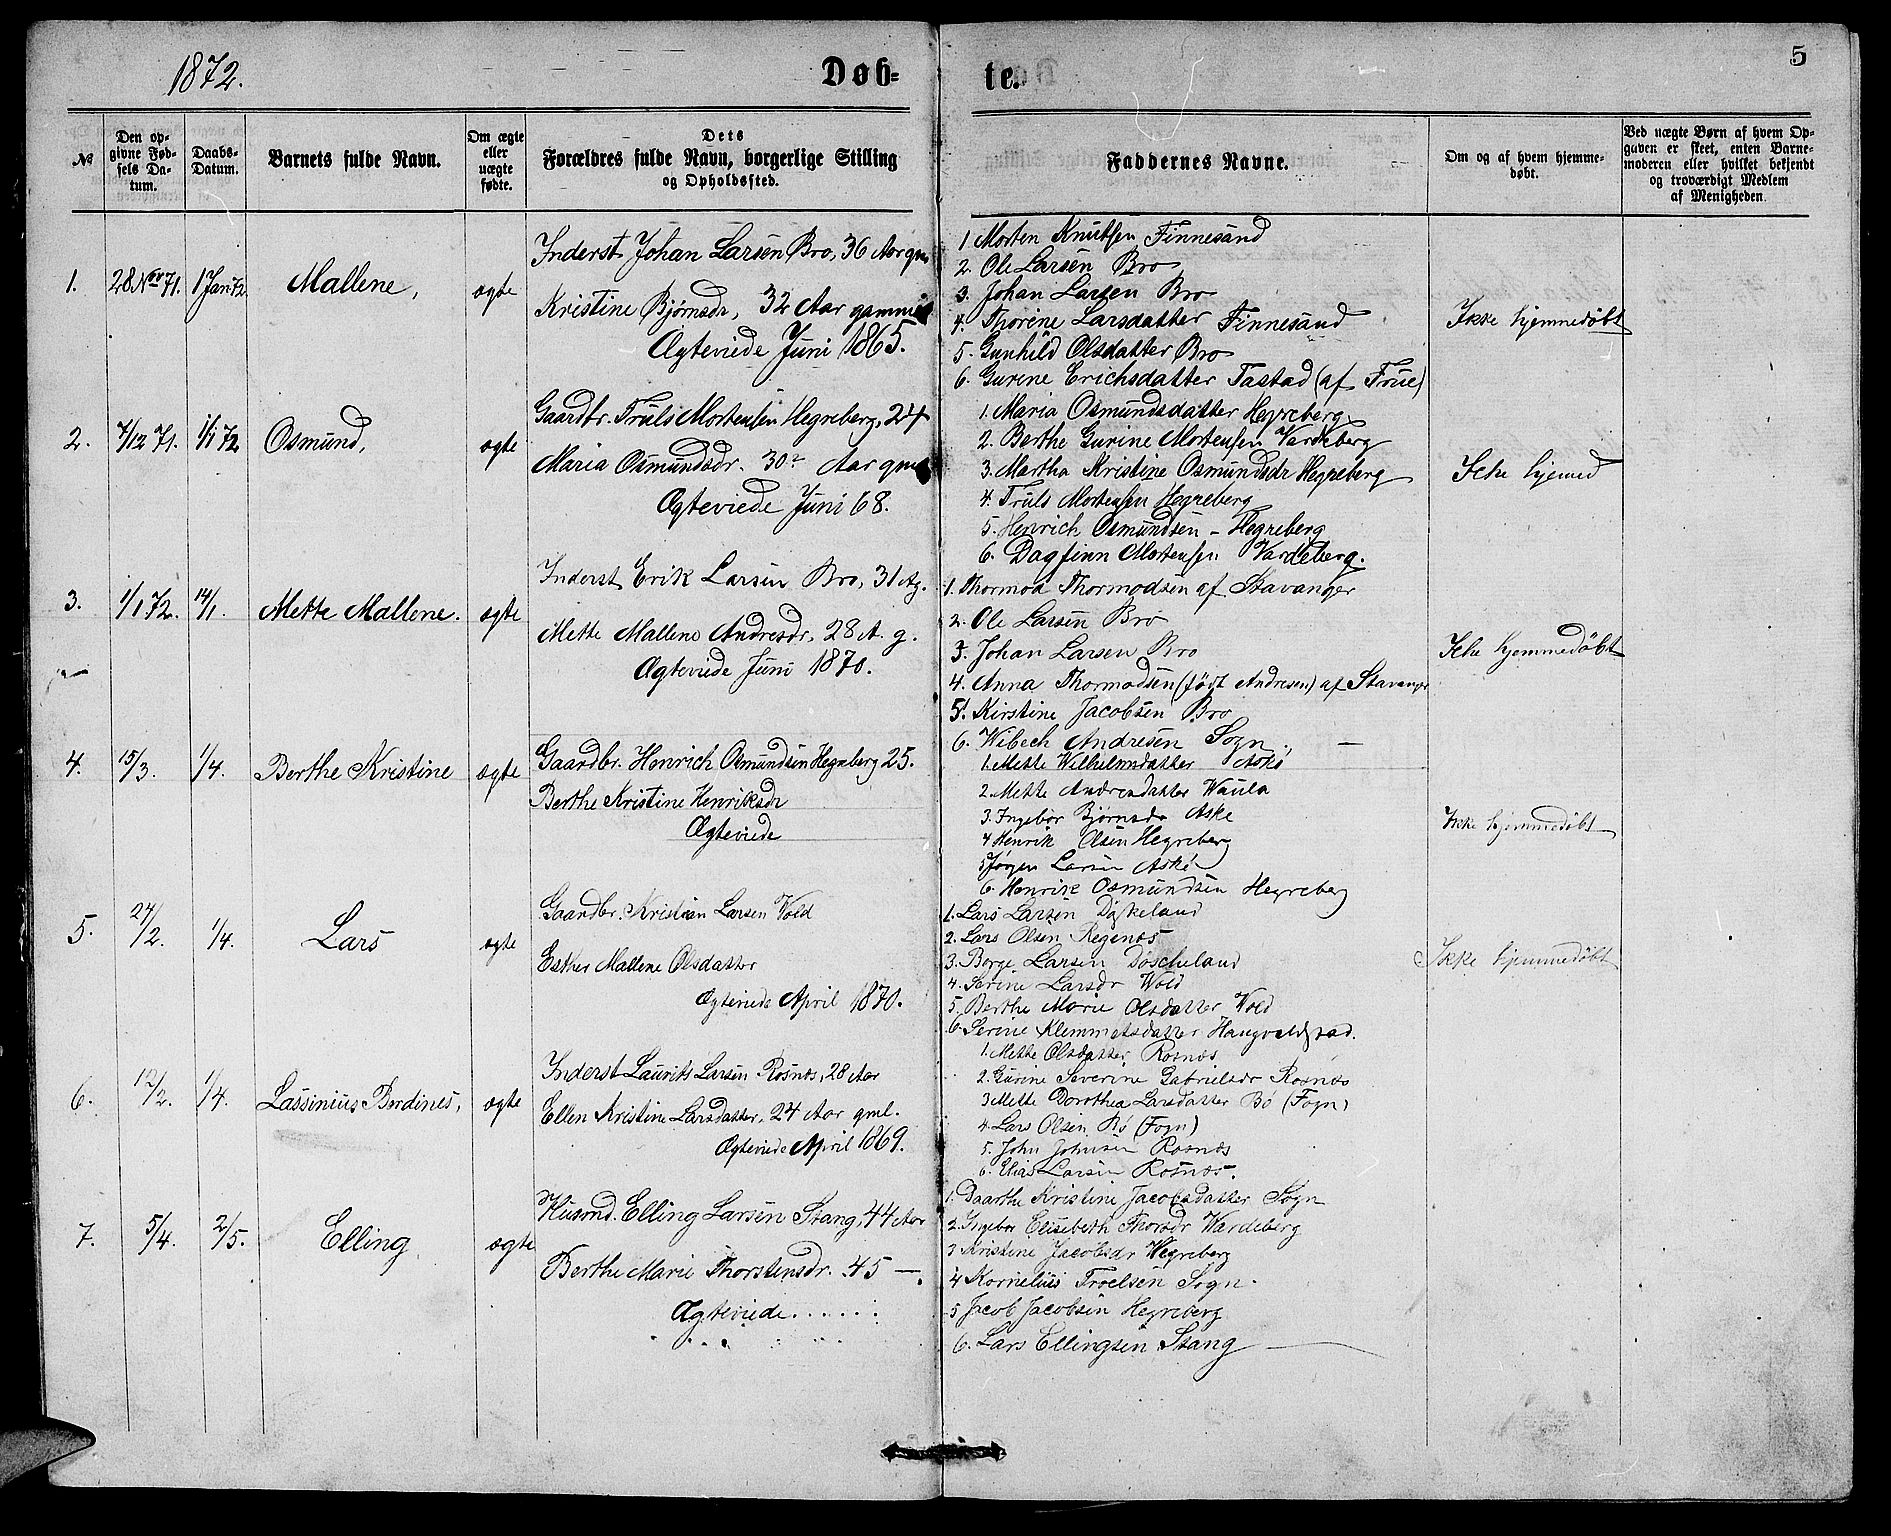 1872.
Døb-
te.
5
№
Den op-
givne Fød-
sels Da-
tum.
Daabs-
Datum.
Barnets fulde Navn.
Om ægte
eller
uægte
fødte.
Dets
Forældres fulde Navn, borgerlige Stilling
og Opholdssted.
Faddernes Navne.
Om og af hvem hjemme-
døbt.
Ved uægte Børn af hvem Op-
gaven er skeet, enten Barne-
moderen eller hvilket bekjendt
og troværdigt Medlem
af Menigheden.
1. 28 Nov 71. 1 Jan 72 Mallene, ægte
Inderst Johan Larsen Bro, 36 Aar gm
Kristine Bjørnsdr, 32 Aar gammel
Ægteviede Juni 1865.
1 Morten Knutsen Finnesand
2. Ole Larsen Bro
3. Johan Larsen Bro
4. Thorine Larsdatter Finnesand
5. Gunhild Olsdatter Bro
6. Gurine Erichsdatter Tastad (af Frue)
Ikke hjemmedøbt
2. 7/12 71. 1/1 72 Osmund, ægte
Gaardbr. Truls Mortensen Hegreberg, 24
Maria Osmundsdr. 30 Aar gm
Ægteviede Juni 68.
1. Maria Osmundsdatter Hegreberg
2. Berthe Gurine Mortensen Vardeberg
3. Martha Kristine Osmundsdr Hegreberg
4. Truls Mortensen Hegreberg
5. Henrich Osmundsen - Hegreberg
6. Dagfinn Mortensen Vardeberg.
Ikke hjemmed
3. 1/1 72. 14/1. Mette Mallene. ægte
Inderst Erik Larsen Bro, 31 A g.
Mette Mallene Andresdr, 28 A. g.
Ægteviede Juni 1870.
1. Thormod Thormodsen af Stavanger
2. Ole Larsen Bro
3. Johan Larsen Bro
4. Anna Thormodsen (født Andresen) af Stavanger
5. Kirstine Jacobsen Bro
6. Wibech Andresen Sogn. —
Ikke hjemmedøbt
4. 15/3. 1/4. Berthe Kristine ægte
Gaardbr. Henrich Osmundsen Hegreberg 25.
Berthe Kristine Henriksdr
Ægteviede
1. Mette Wilhelmsdatter Askø
2. Mette Andreasdatter Waula
3. Ingebor Bjørnsdr Aske
4 Henrik Olsen Hegreberg
5 Jørgen Larsen Aske
6. Henrik Osmundsen Hegreberg
Ikke hjemmedøbt
5. 24/2. 1/4. Lars ægte
Gaardbr. Kristian Larsen Vold
Esther Mallene Olsdatter
Ægteviede April 1870.
1. Lars Larsen Døskeland
2. Lars Olsen Regenæs
3. Børge Larsen Døscheland
4. Serine Larsdr Wold
5. Berthe Marie Olsdatter Vold
6. Serine Klemmetsdatter Haugvaldstad.
Ikke hjemmedøbt
6. 12/2. 1/4. Lassinius Berdines, ægte
Inderst Laurits Larsen Rosnæs, 28 Aar
Ellen Kristine Larsdatter, 24 Aar gml.
Ægteviede April 1869.
1. Mette Olsdatter Rosnæs
2. Gurine Severine Gabrielsdr Rosnæs
3 Mette Dorothea Larsdatter Bø (Fogn)
4. Lars Olsen Bø (Fogn)
5. John Johnsen Rosnæs
6. Elias Larsen Rosnæs.
7. 5/4. 2/5. Elling. ægte
Husmd. Elling Larsen Stang, 44 Aar
Berthe Marie Thorstensdr. 45 —.
Ægteviede......
1. Daarthe Kristine Jacobsdatter Sogn
2. Ingebor Elisebeth Thorsdr Vardeberg
3 Kristine Jacobsdr Hegreberg
4 Kornelius Troelsen Sogn.
5 Jacob Jacobsen Hegreberg
6. Lars Ellingsen Stang —